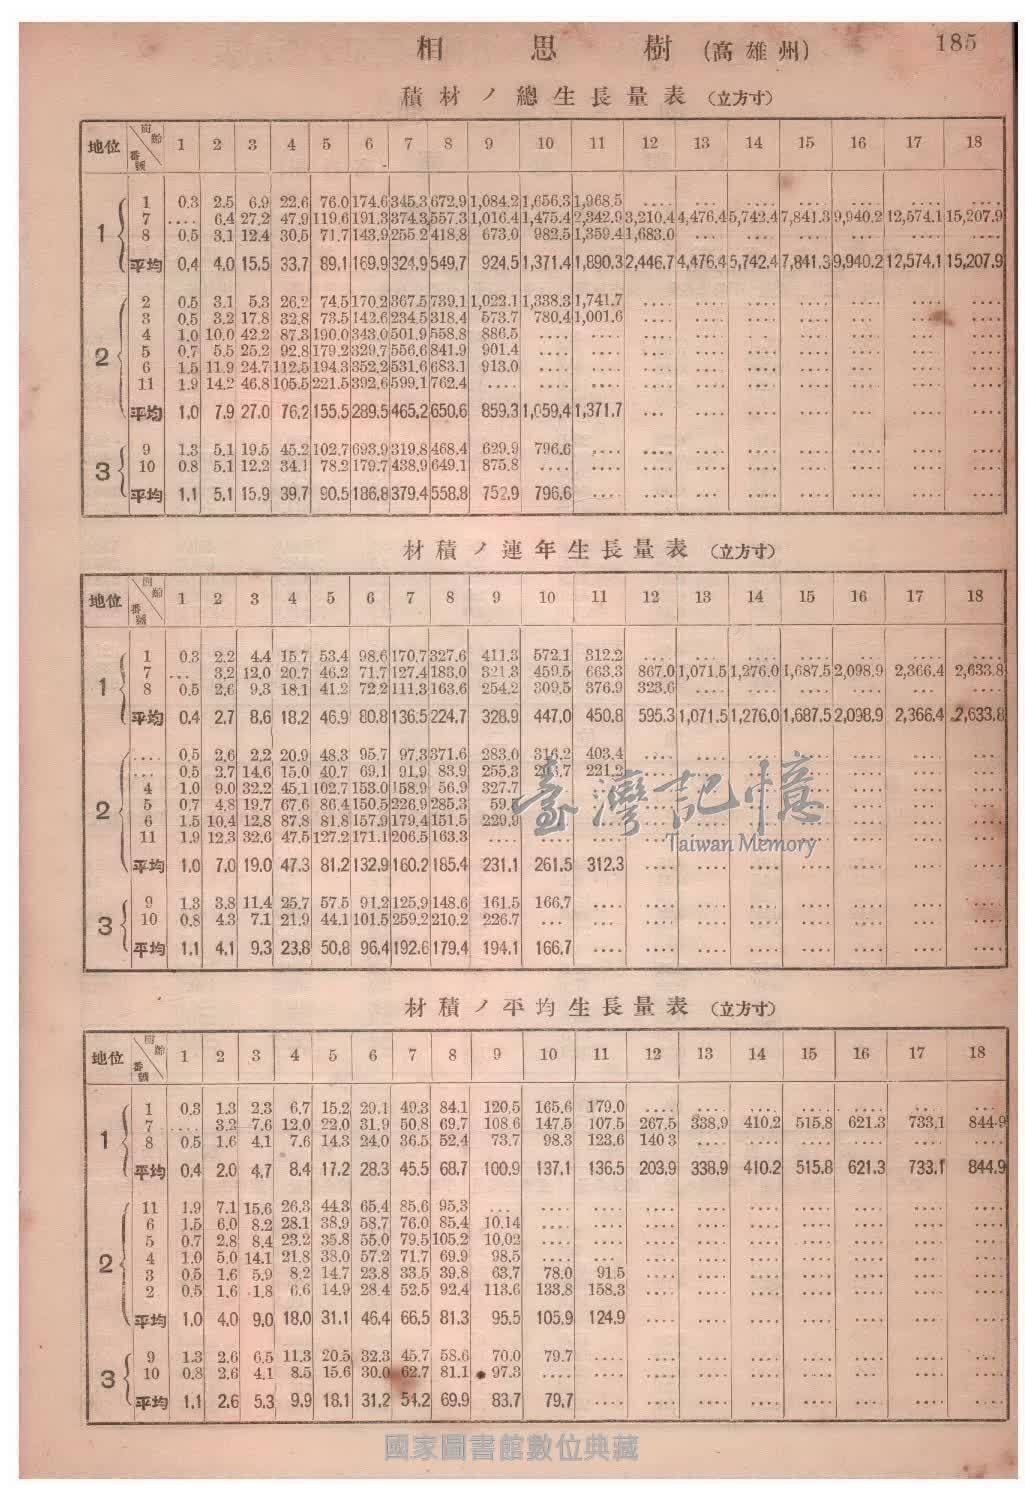 相思樹 (高雄州) 185
積材ノ總生長量表 (立方寸)
地位 番號 1 2 3 4 5 6 7 8 9 10 11 12 13 14 15 16 17 18
1 1 0.3 2.5 6.9 22.6 76.0 174.6 345.3 672.9 1,084.2 1,656.3 1,968.5 .... .... .... .... .... .... ....
7 .... 6.4 27.2 47.9 119.6 191.3 374.3 557.3 1,016.4 1,475.4 2,342.9 3,210.4 4,476.4 5,742.4 7,841.3 9,940.2 12,574.1 15,207.9
8 0.5 3.1 12.4 30.5 71.7 143.9 255.2 418.8 673.0 982.5 1,359.4 1,683.0 .... .... .... .... .... ....
平均 0.4 4.0 15.5 33.7 89.1 169.9 324.9 549.7 924.5 1,371.4 1,890.3 2,446.7 4,476.4 5,742.4 7,841.3 9,940.2 12,574.1 15,207.9
2 2 0.5 3.1 5.3 26.2 74.5 170.2 367.5 739.1 1,022.1 1,338.3 1,741.7 .... .... .... .... .... .... ....
3 0.5 3.2 17.8 32.8 73.5 142.6 234.5 318.4 573.7 780.4 1,001.6 .... .... .... .... .... .... ....
4 1.0 10.0 42.2 87.3 190.0 343.0 501.9 558.8 886.5 .... .... .... .... .... .... .... .... ....
5 0.7 5.5 25.2 92.8 179.2 329.7 556.6 841.9 901.4 .... .... .... .... .... .... .... .... ....
6 1.5 11.9 24.7 112.5 194.3 352.2 531.6 683.1 913.0 .... .... .... .... .... .... .... .... ....
11 1.9 14.2 46.8 105.5 221.5 392.6 599.1 762.4 .... .... .... .... .... .... .... .... .... ....
平均 1.0 7.9 27.0 76.2 155.5 289.5 465.2 650.6 859.3 1,059.4 1,371.7 .... .... .... .... .... .... ....
3 9 1.3 5.1 19.5 45.2 102.7 693.9 319.8 468.4 629.9 796.6 .... .... .... .... .... .... .... ....
10 0.8 5.1 12.2 34.1 78.2 179.7 438.9 649.1 875.8 .... .... .... .... .... .... .... .... ....
平均 1.1 5.1 15.9 39.7 90.5 186.8 379.4 558.8 752.9 796.6 .... .... .... .... .... .... .... ....
材積ノ連年生長量表 (立方寸)
地位 番號 1 2 3 4 5 6 7 8 9 10 11 12 13 14 15 16 17 18
1 1 0.3 2.2 4.4 15.7 53.4 98.6 170.7 327.6 411.3 572.1 312.2 .... .... .... .... .... .... ....
7 ... 3.2 12.0 20.7 46.2 71.7 127.4 183.0 321.3 459.5 663.3 867.0 1,071.5 1,276.0 1,687.5 2,098.9 2,366.4 2,633.8
8 0.5 2.6 9.3 18.1 41.2 72.2 111.3 163.6 254.2 309.5 376.9 323.6 .... .... .... .... .... ....
平均 0.4 2.7 8.6 18.2 46.9 80.8 136.5 224.7 328.9 447.0 450.8 595.3 1,071.5 1,276.0 1,687.5 2,098.9 2,366.4 2,633.8
2 .... 0.5 2.6 2.2 20.9 48.3 95.7 97.3 371.6 283.0 316.2 403.4 .... .... .... .... .... .... ....
... 0.5 2.7 14.6 15.0 40.7 69.1 91.9 83.9 255.3 221.2 .... .... .... .... .... .... ....
4 1.0 9.0 32.2 45.1 102.7 153.0 158.9 56.9 327.7 .... .... .... .... .... .... ....
5 0.7 4.8 19.7 67.6 86.4 150.5 226.9 285.3 59.5 .... .... .... .... .... .... ....
6 1.5 10.4 12.8 87.8 81.8 157.9 179.4 151.5 229.9 .... .... .... .... .... .... ....
11 1.9 12.3 32.6 47.5 127.2 171.1 206.5 163.3 .... .... .... .... .... .... .... .... .... ....
平均 1.0 7.0 19.0 47.3 81.2 132.9 160.2 185.4 231.1 261.5 312.3 .... .... .... .... .... .... ....
3 9 1.3 3.8 11.4 25.7 57.5 91.2 125.9 148.6 161.5 166.7 .... .... .... .... .... .... .... ....
10 0.8 4.3 7.1 21.9 44.1 101.5 259.2 210.2 226.7 ... .... .... .... .... .... .... .... ....
平均 1.1 4.1 9.3 23.8 50.8 96.4 192.6 179.4 194.1 166.7 .... .... .... .... .... .... .... ....
臺灣記憶
Taiwan Memory
材積ノ平均生長量表 (立方寸)
地位 番號 1 2 3 4 5 6 7 8 9 10 11 12 13 14 15 16 17 18
1 1 0.3 1.3 2.3 6.7 15.2 29.1 49.3 84.1 120.5 165.6 179.0 .... .... .... .... .... ... ...
7 .... 3.2 7.6 12.0 22.0 31.9 50.8 69.7 108.6 147.5 107.5 267.5 338.9 410.2 515.8 621.3 733.1 844.9
8 0.5 1.6 4.1 7.6 14.3 24.0 36.5 52.4 73.7 98.3 123.6 140.3 .... .... .... .... .... ....
平均 0.4 2.0 4.7 8.4 17.2 28.3 45.5 68.7 100.9 137.1 136.5 203.9 338.9 410.2 515.8 621.3 733.1 844.9
2 11 1.9 7.1 15.6 26.3 44.3 65.4 85.6 95.3 ... .... .... .... .... .... .... .... .... ....
6 1.5 6.0 8.2 28.1 38.9 58.7 76.0 85.4 10.14 .... .... .... .... .... .... .... .... ....
5 0.7 2.8 8.4 23.2 35.8 55.0 79.5 105.2 10.02 .... .... .... .... .... .... .... .... ....
4 1.0 5.0 14.1 21.8 38.0 57.2 71.7 69.9 98.5 .... ... .... .... .... .... .... .... ....
3 0.5 1.6 5.9 8.2 14.7 23.8 33.5 39.8 63.7 78.0 91.5 .... .... .... .... .... .... ....
2 0.5 1.6 1.8 6.6 14.9 28.4 52.5 92.4 113.6 133.8 158.3 .... .... .... .... .... .... ....
平均 1.0 4.0 9.0 18.0 31.1 46.4 66.5 81.3 95.5 105.9 124.9 .... .... .... .... .... .... ....
3 9 1.3 2.6 6.5 11.3 20.5 32.3 45.7 58.6 70.0 79.7 .... .... .... .... .... .... .... ....
10 0.8 2.6 4.1 8.5 15.6 30.0 62.7 81.1 97.3 .... .... .... .... .... .... .... .... ....
平均 1.1 2.6 5.3 9.9 18.1 31.2 54.2 69.9 83.7 79.7 .... .... .... .... .... .... .... ....
國家圖書館數位典藏